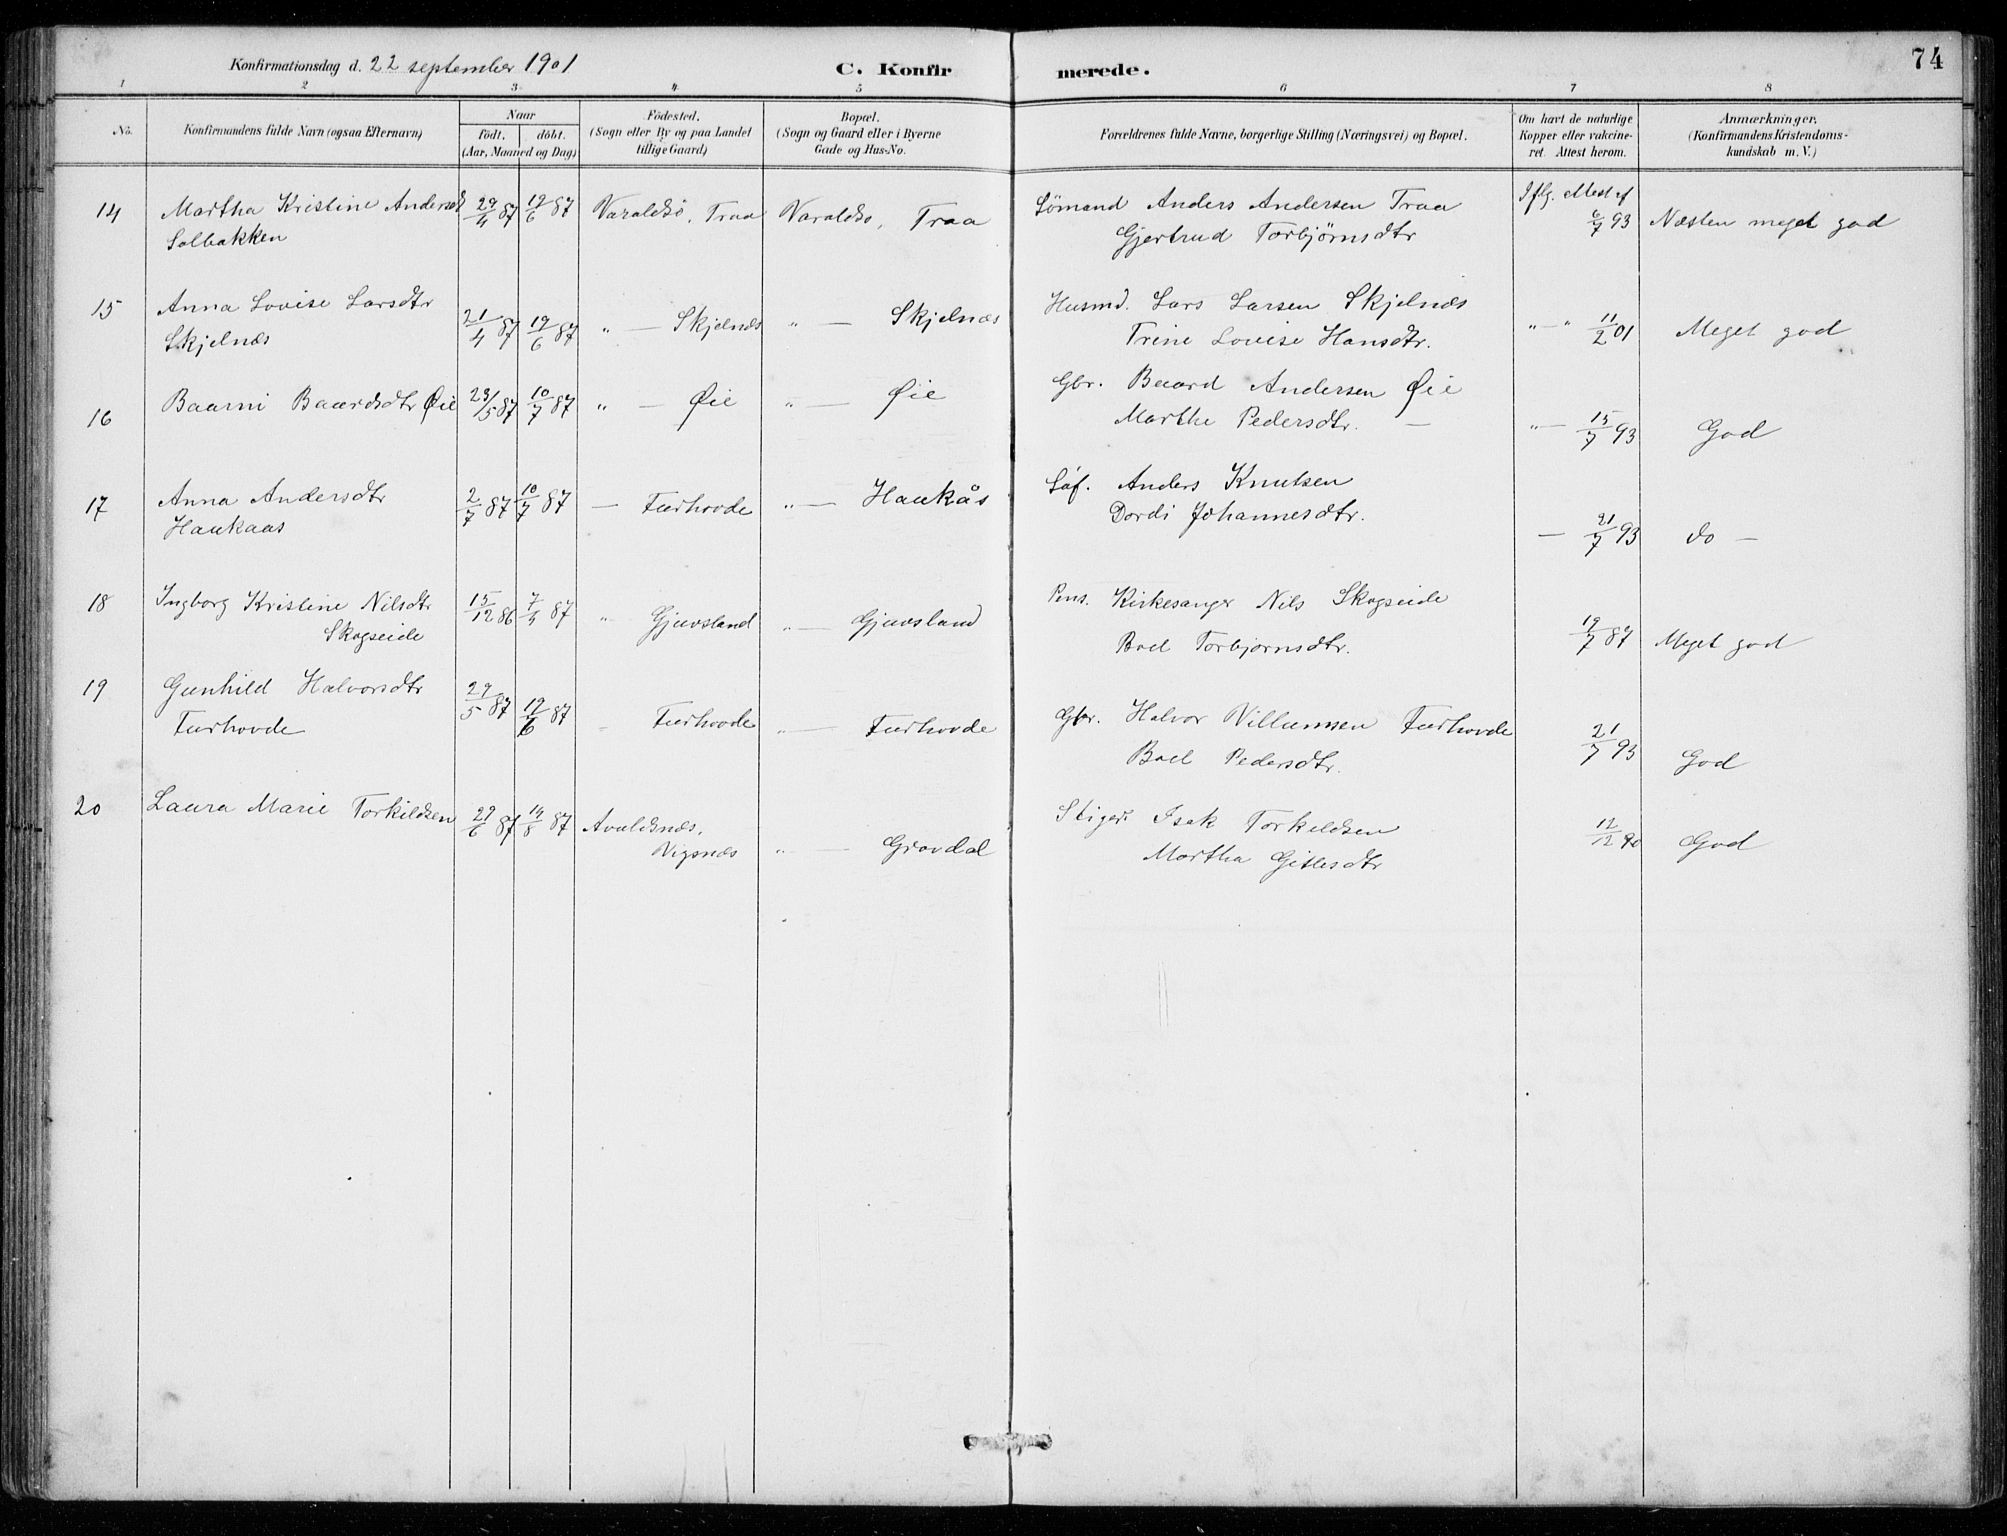 Konfirmationsdag d. 22 september 1901
C. Konfirmerede.
74
1 2 3 4 5 6 7 8
No.
Konfirmandens fulde Navn (ogsaa Efternavn)
Naar
födt. döbt.
(Aar, Maaned og Dag)
Födested.
(Sogn eller By og paa Landet
tillige Gaard)
Bopæl.
(Sogn og Gaard eller i Byerne
Gade og Hus-No.
Forældrenes fulde Navne, borgerlige Stilling (Næringsvei) og Bopæl.
Om havt de naturlige
Kopper eller vakcine-
ret. Attest herom.
Anmærkninger.
(Konfirmandens Kristendoms-
kundskab m. V.)
14 Martha Kristine Andersd 29/4 87 19/6 87 Varaldsö, Traa Varaldso, Traa Sömand Anders Andersen Traa Iflg. attest af
Solbakken Gjertrud Torbjørnsdtr 6/7 93 Næsten meget god
15 Anna Lovise Larsdtr Husmd. Lars Larsen Skjelnæs
Skjelnæs 21/4 87 19/6 87 " — Skjelnæs " — Skjelnæs Trine Lovise Hansdtr. "—" 11/2 01 Meget god
16 Baarni Baardsdtr Øie 23/5 87 10/7 87 " — Øie " — Øie Gbr. Baard Andersen Øie
Marthe Pedersdtr. — "— 15/7 93 God
17 Anna Andersdtr 2/7 87 10/7 87 — Furhovde " — Haukås Anders Knutsen
Haukaas Dordi Johannesdtr. — 21/7 93 do —
18 Ingborg Kristine Nilsdtr 15/12 86 7/4 87 " Gjuvsland " — Gjuvsland Pens. Kirkesanger Nils Skogseide
Skogseide Boel Torbjornsdtr. 19/7 87 Meget god
19 Gunhild Halvorsdtr 29/5 87 19/6 87 " Furhovde " — Furhovde Gbr. Halvor Villumsen Furhovde
Furhovde Boel Pedersdtr. 21/7 93 God
20 Laura Marie Torkildsen 29/6 87 14/8 87 Avaldsnæs, Stiger Isak Torkeldsen
Vigsnæs " — Gravdal Martha Gitlesdtr 12/12 90 God